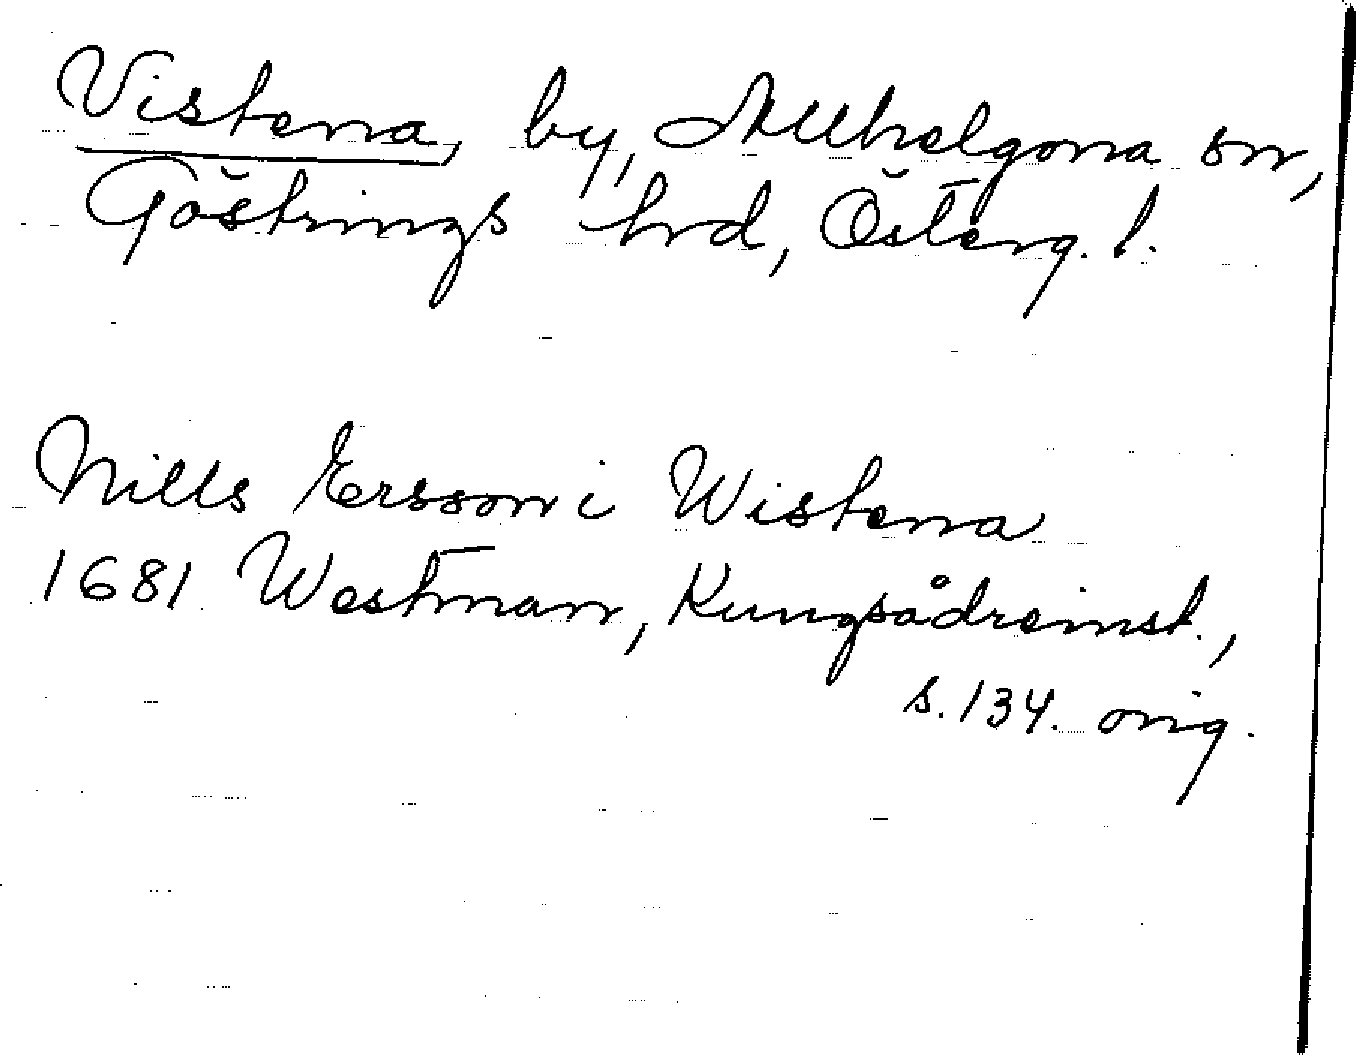 Vistena, by, Allhelgona sn,
Göstrings hrd, Österg. l.
Nills Ersson i Wistena
1681 Westman, Kungsådreinst.,
s. 134. orig.